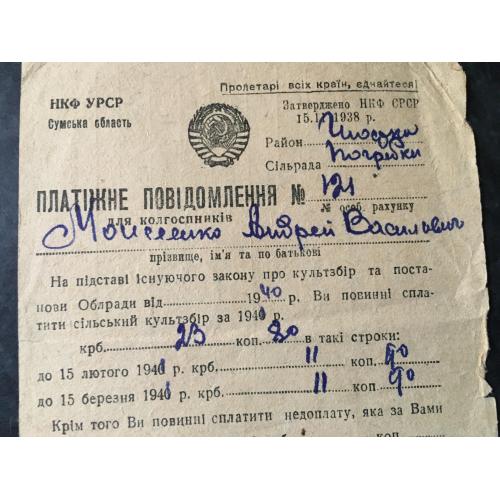 Пролетарі всіх країн, єднайтеся
НКФ УРСР
Сумська область
Затверджено НКФ СРСР
15.1 1938 р.
Район
Сільрада Погребки
ПЛАТІЖНЕ ПОВІДОМЛЕННЯ № 121
для колгоспників № особ. рахунку
Моисеенко Андрей Василович
прізвище, ім'я та по батькові
На підставі існуючого закону про культзбір та поста-
нови Облради від 1940 р. Ви повинні спла-
тити сільський культзбір за 1941 р.
крб. 23 коп. 80 в такі строки:
до 15 лютого 1941 р. крб. 11 коп. 90
до 15 березня 1941 р. крб. 11 коп. 90
Крім того Ви повинні сплатити недоплату, яка за Вами
коп.